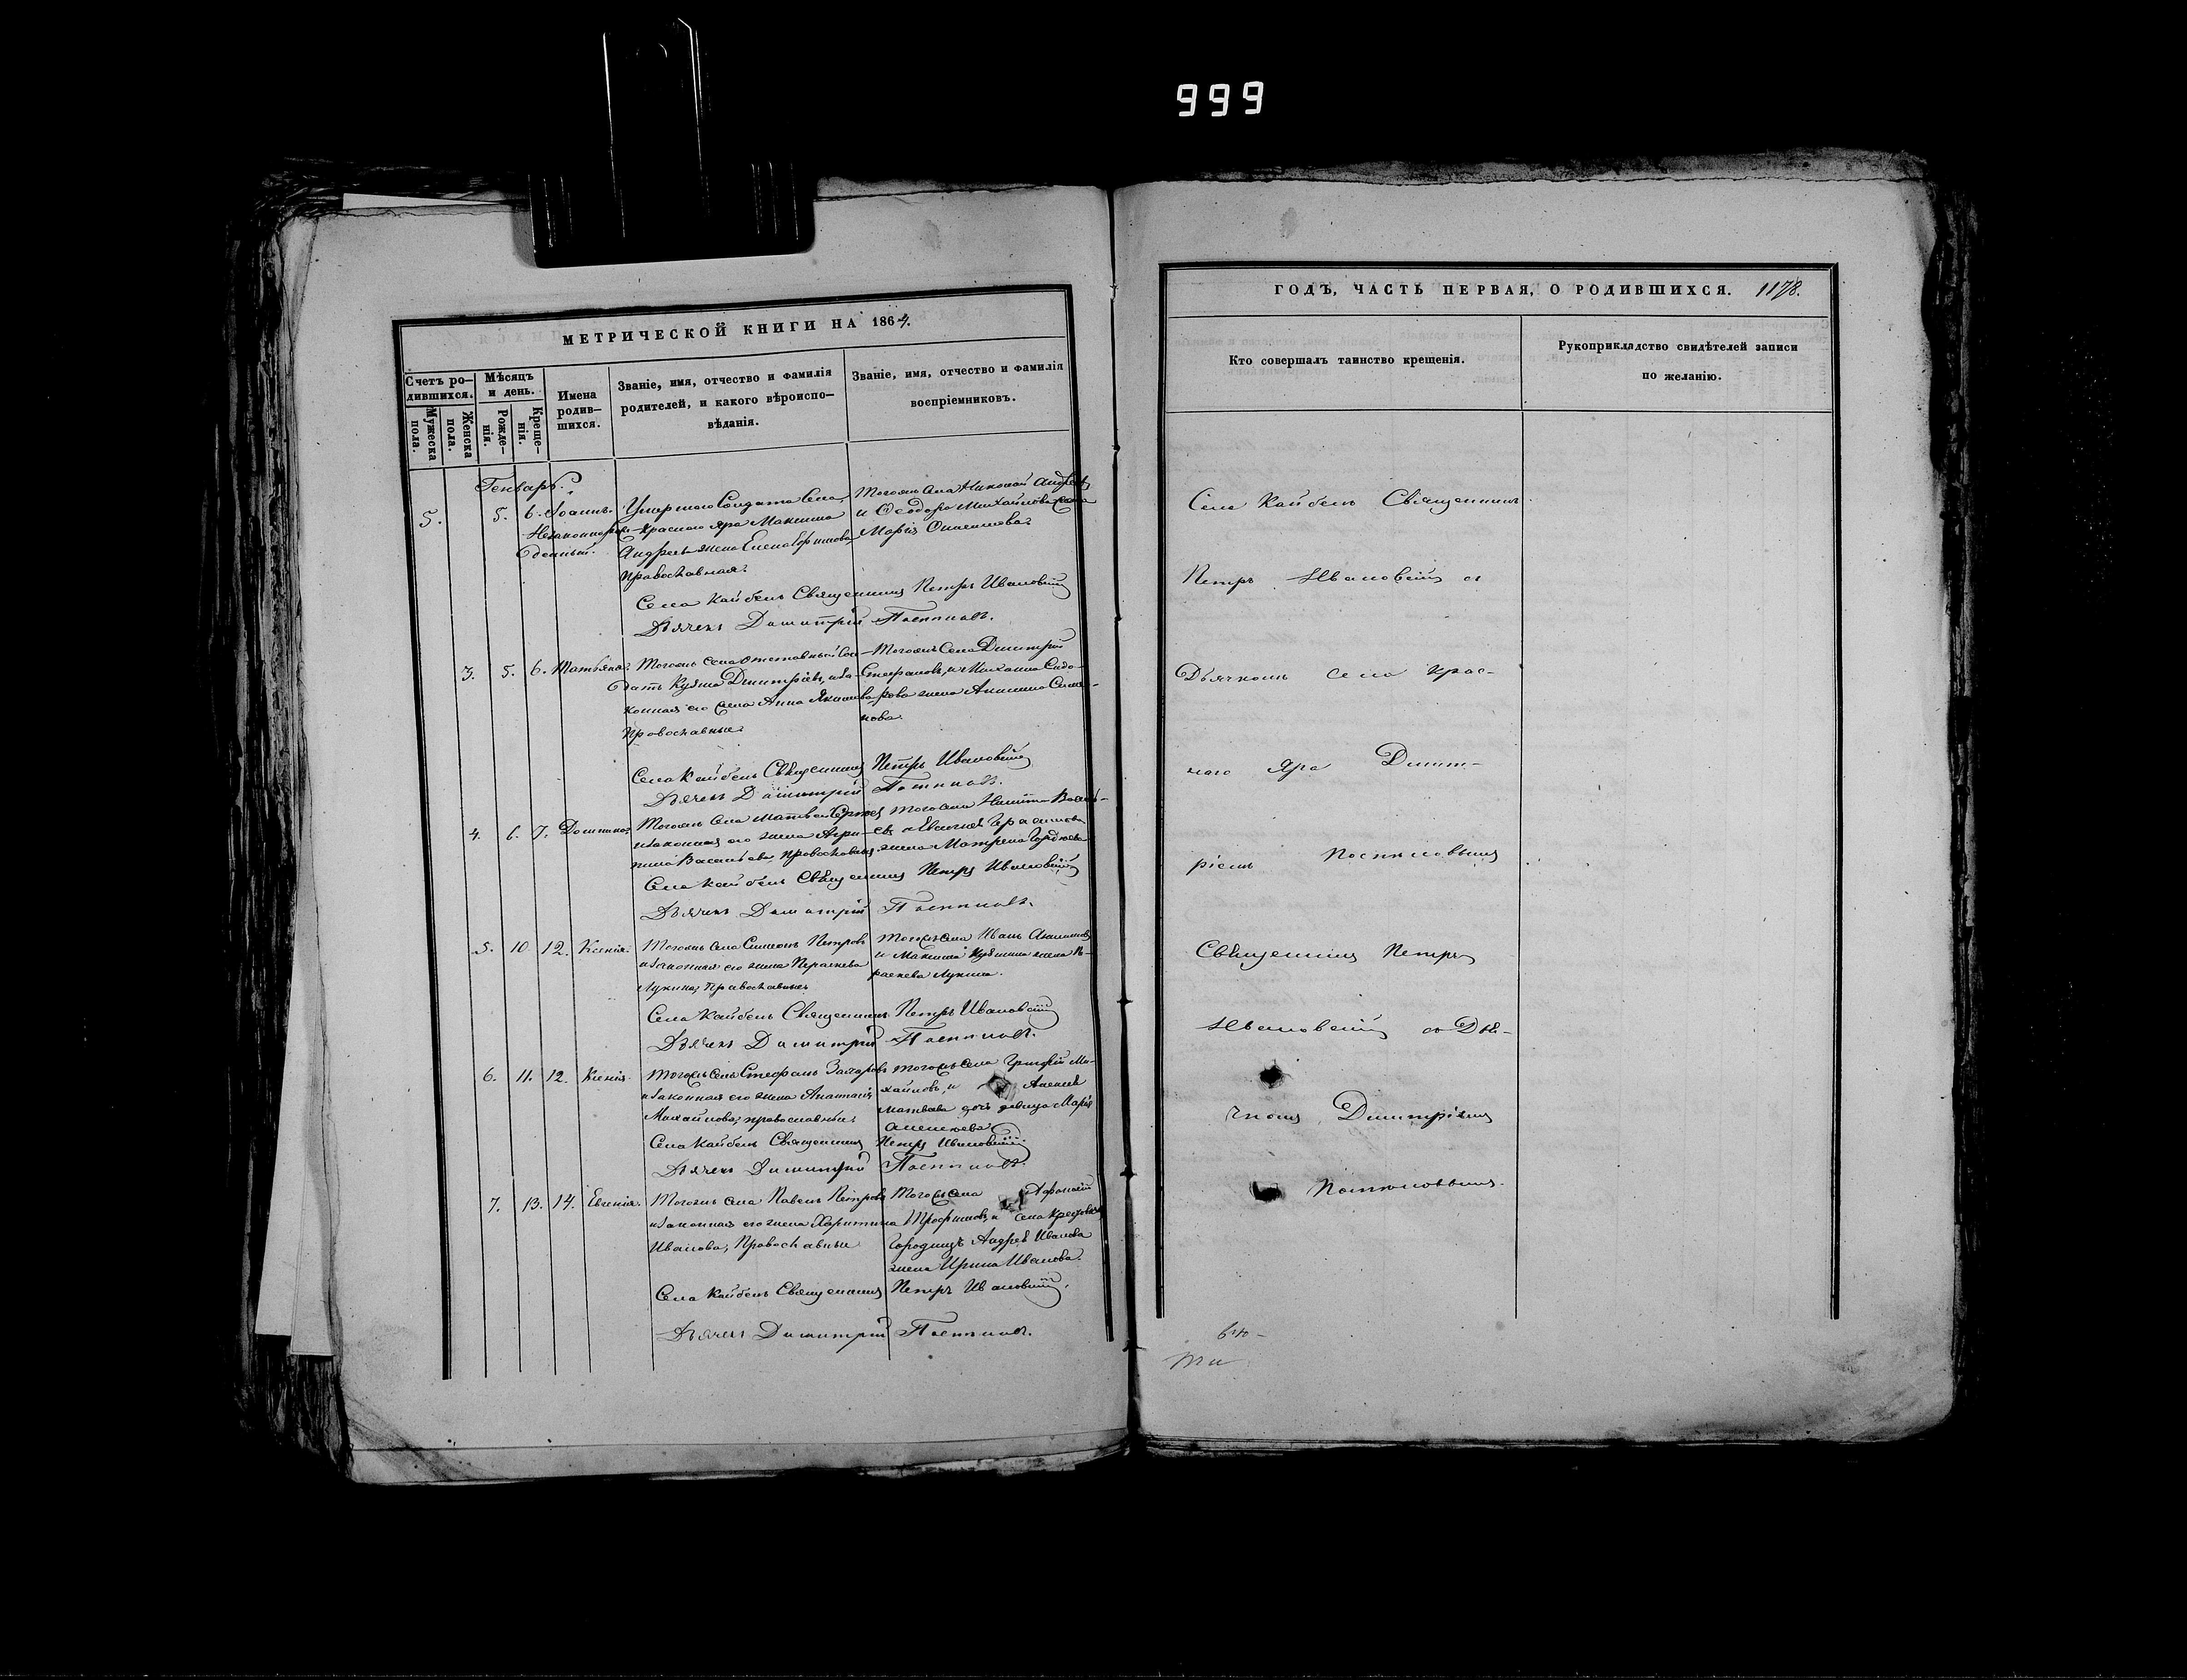 999
МЕТРИЧЕСКОЙ КНИГИ НА 1864.
Счетъ ро-
дившихся.
Мужеска
пола.
Женска
пола.
Мѣсяцъ
и день.
Рожде-
нія.
Креще-
нія.
Имена
родив-
шихся.
Званіе, имя, отчество и фамилія
родителей, и какого вѣроиспо-
вѣданія.
Званіе, имя, отчество и фамилія
воспріемниковъ.
Генварь.
5. 5. 6. Іоаннъ.
Незаконнорож-
денный.
Умершаго Солдата Села
Краснаго яра Максима
Андреева жена Елена
Православная.
Тогожъ села Николай Андреевъ
и Ѳеодора Михайлова
Марія
Села Кайбелъ Священникъ Петръ Ивановскій
Дьячекъ Димитрій
3. 5. 6. Татьяна.
Тогожъ села отставный Сол-
датъ Кузма Димитріевъ, и за-
конная его жена Анна
Православные.
Тогожъ Села Димитрій
Стефановъ, и Михаила Сидо-
рова жена Акилина Семе-
нова.
Села Кайбелъ Священникъ Петръ Ивановскій
Дьячекъ Димитрій
4. 6. 7. Домника.
Тогожъ села Матвей
и законная его жена Агри-
пина Васильева, православные.
Тогожъ села Никита Василь-
евъ и Евгенія Герасимова
жена Матрена
Села Кайбелъ Священникъ Петръ Ивановскій
Дьячекъ Димитрій
5. 10 12. Ксенія.
Тогожъ села Симеонъ Петровъ
и законная его жена Параскева
Лукина, Православные
Тогожъ села Иванъ
и Максима Кузмина жена Па-
раскева Лукина.
Села Кайбелъ Священникъ Петръ Ивановскій
Дьячекъ Димитрій
6. 11. 12. Ксенія.
Тогожъ села Стефанъ Захаровъ
и законная его жена Анастасія
Михайлова, православные.
тогожъ села Григорій Ми-
хайловъ, и Алексея
Матвеева дочь девица Марія
Алексеева
Села Кайбелъ Священникъ Петръ Ивановскій
Дьячекъ Димитрій
7. 13. 14. Евгенія.
Тогожъ села Павелъ Петровъ
и законная его жена Харитина
Иванова, Православные
Тогожъ села Афонасій
Трофимовъ, и села
Городищъ Андрея Иванова
жена Ирина Иванова.
Села Кайбелъ Священникъ Петръ Ивановскій.
Дьячекъ Димитрій
ГОДЪ, ЧАСТЬ ПЕРВАЯ, О РОДИВШИХСЯ. 1178.
Кто совершалъ таинство крещенія.
Рукоприкладство свидѣтелей записи
по желанію.
Села Кайбелъ Священникъ
Петръ Ивановскій съ
Дьячкомъ села Крас-
наго Яра Димит-
ріемъ
Священникъ Петръ
Ивановскій со Дья-
чкомъ Димитріемъ